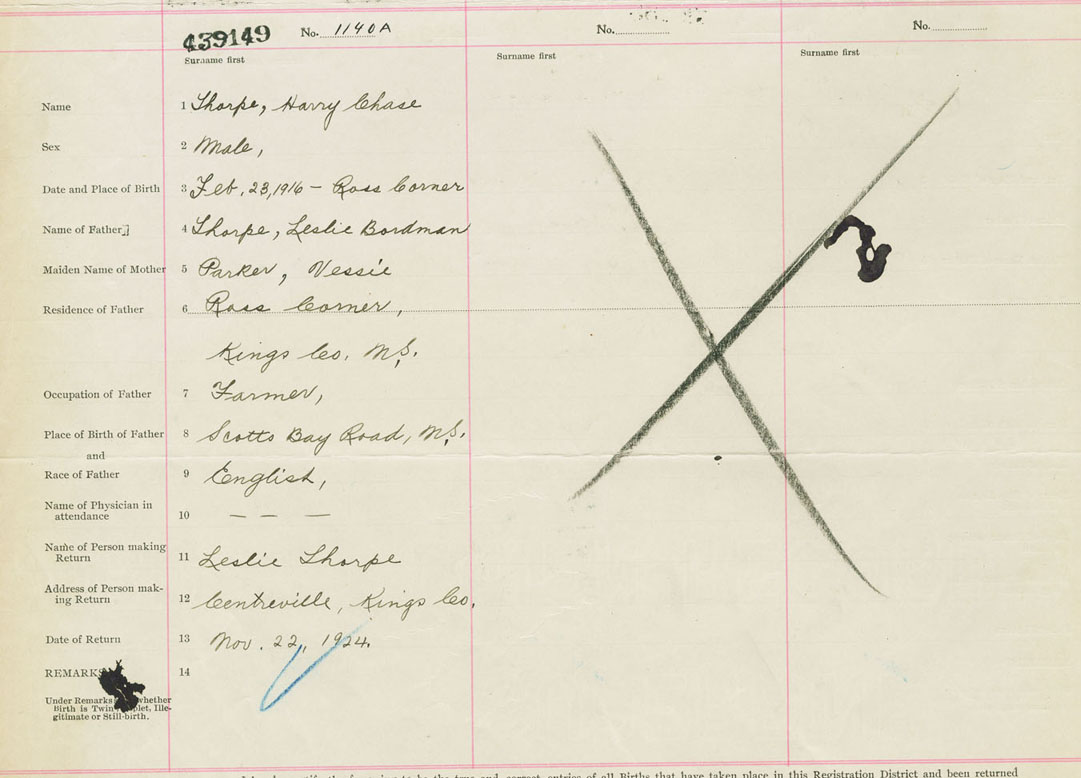 439149 No. 1140A No. No.
Surname first Surname first Surname first
Name 1 Thorpe, Harry Chase
Sex 2 Male,
Date and Place of Birth 3 Feb. 23, 1916 - Ross Corner
Name of Father 4 Thorpe, Leslie Bordman
Maiden Name of Mother 5 Parker, Vessie
Residence of Father 6 Ross Corner,
Kings Co. N.S.
Occupation of Father 7 Farmer,
Place of Birth of Father 8 Scotts Bay Road, N.S.
and
Race of Father 9 English,
Name of Physician in
attendance 10 — — —
Name of Person making
Return 11 Leslie Thorpe
Address of Person mak-
ing Return 12 Centreville, Kings Co.
Date of Return 13 Nov. 22, 1924.
REMARKS 14
Under Remarks whether
Birth is Twin, Ille-
gitimate or Still-birth.
true and correct entries of all Births that have taken place in this Registration District and been returned